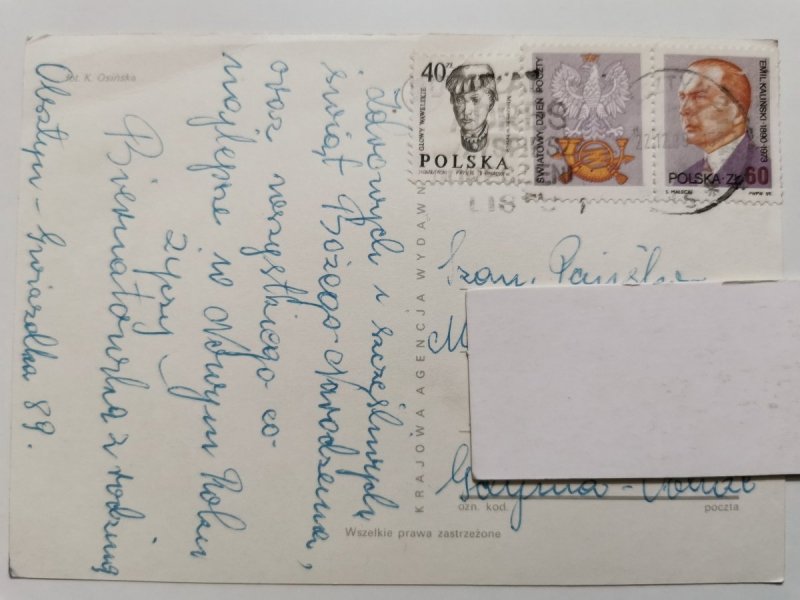 fot. K. Osińska
Zdrowych i szczęśliwych
świąt Bożego Narodzenia,
oraz wszystkiego co
najlepsze w Nowym Roku
życzy
Biernatowska z rodziną
Olsztyn - Gwiazdka 89.
KRAJOWA AGENCJA WYDAWN
40 zł
GŁOWY WAWELSKIE
POLSKA
ŚWIATOWY DZIEŃ POCZTY
EMIL KALIŃSKI · 1890-1973
POLSKA · ZŁ 60
Szan. Państwo
M
Gdynia -
ozn. kod.
poczta
Wszelkie prawa zastrzeżone